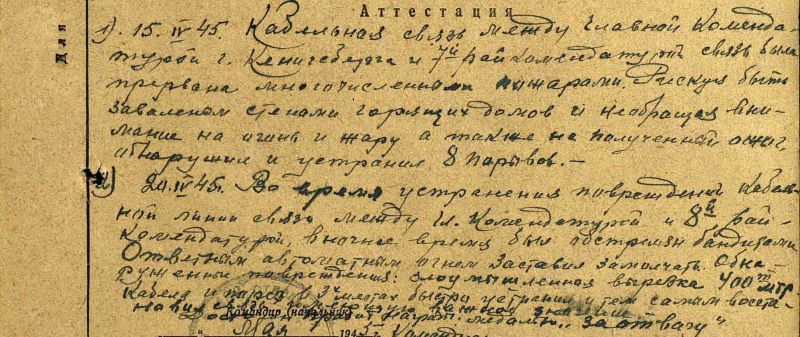 Аттестация
Для
1) 15.IV.45. Кабельная связь между Главной Коменда-
турой г. Кенигсберга и 7й райкомендатурой связь была
прервана многочисленными пожарами. Рискуя быть
заваленом стенами горящих домов и необращая вни-
мание на огонь и жару а также на полученный ожог,
обнаружил и устранил 8 порывов. —
2) 20.IV.45. Во время устранения повреждений кабель-
ной линии связи между Гл. Комендатурой и 8й рай-
комендатурой, в ночное время был обстрелян бандитами
Ответным автоматным огнем заставил замолчать. Обна-
руженные повреждения: злоумышленная вырезка 400 мтр
кабеля и порез в 3х местах быстро устранил и тем самым восста-
новил связь
Достоин наград. медалью „За отвагу"
Командир (начальник)
" Мая 1945